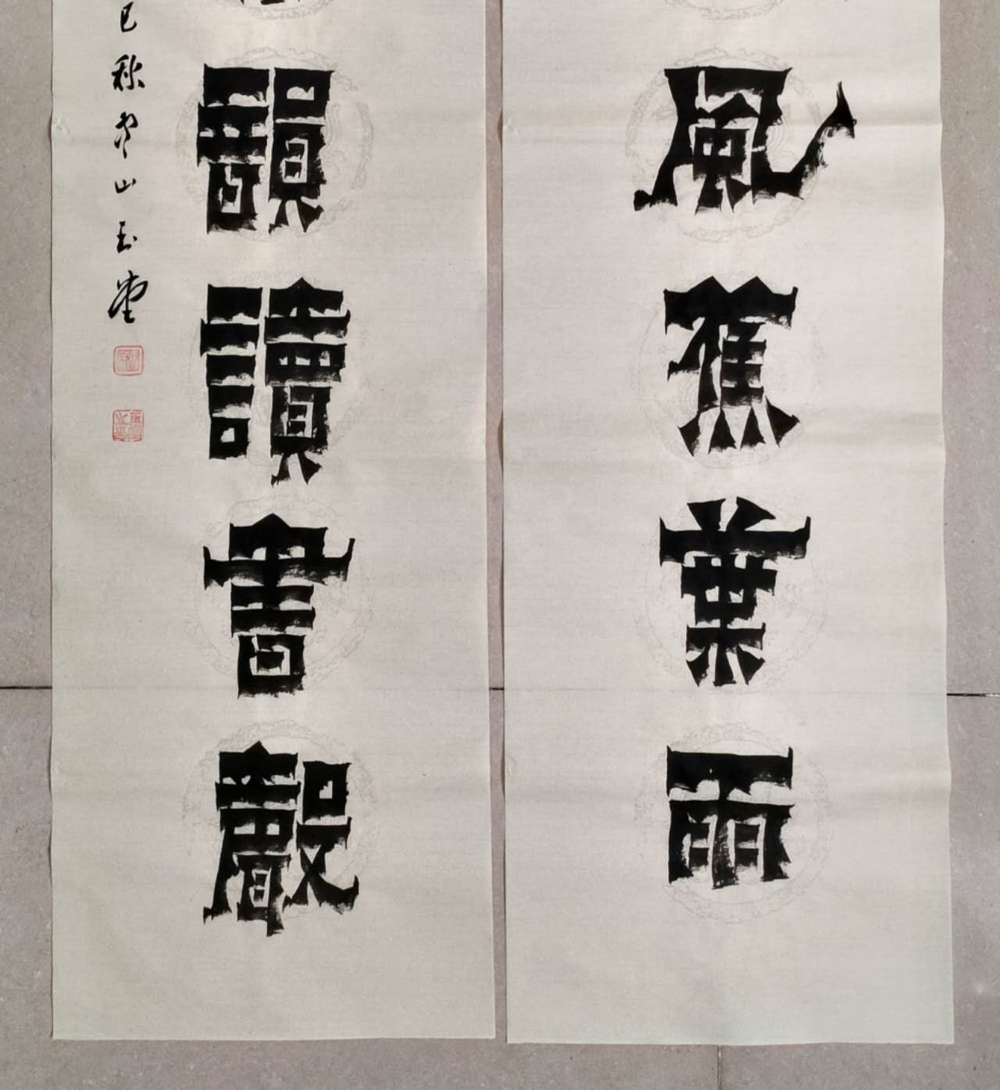 風蕉葉雨
韻讀書聲
巳秋山玉堂